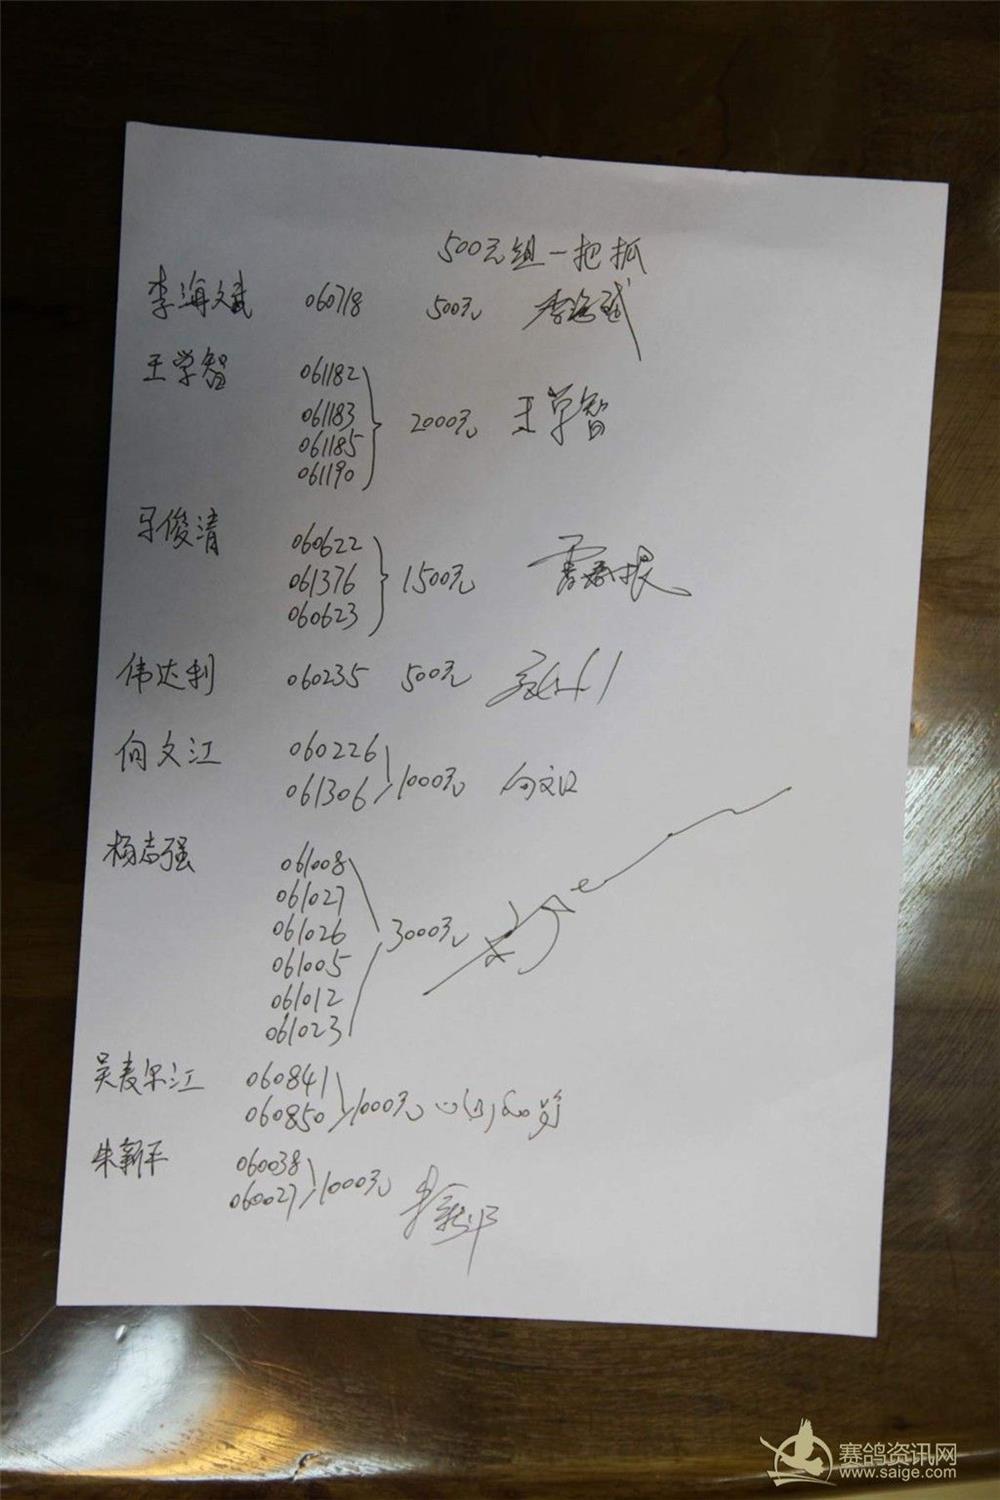 500元组一把抓
李海斌 060718 500元 李海斌
王学智 061182
061183 2000元 王学智
061185
061190
马俊清 060622
061376 1500元
060623
伟达利 060235 500元
向文江 060226
061306 1000元 向文江
杨志强 061008
061027
061026 3000元
061005
061012
061023
吴麦尔江 060841
060850 1000元
朱新平 060038
060027 1000元 朱新平
赛鸽资讯网
www.saige.com